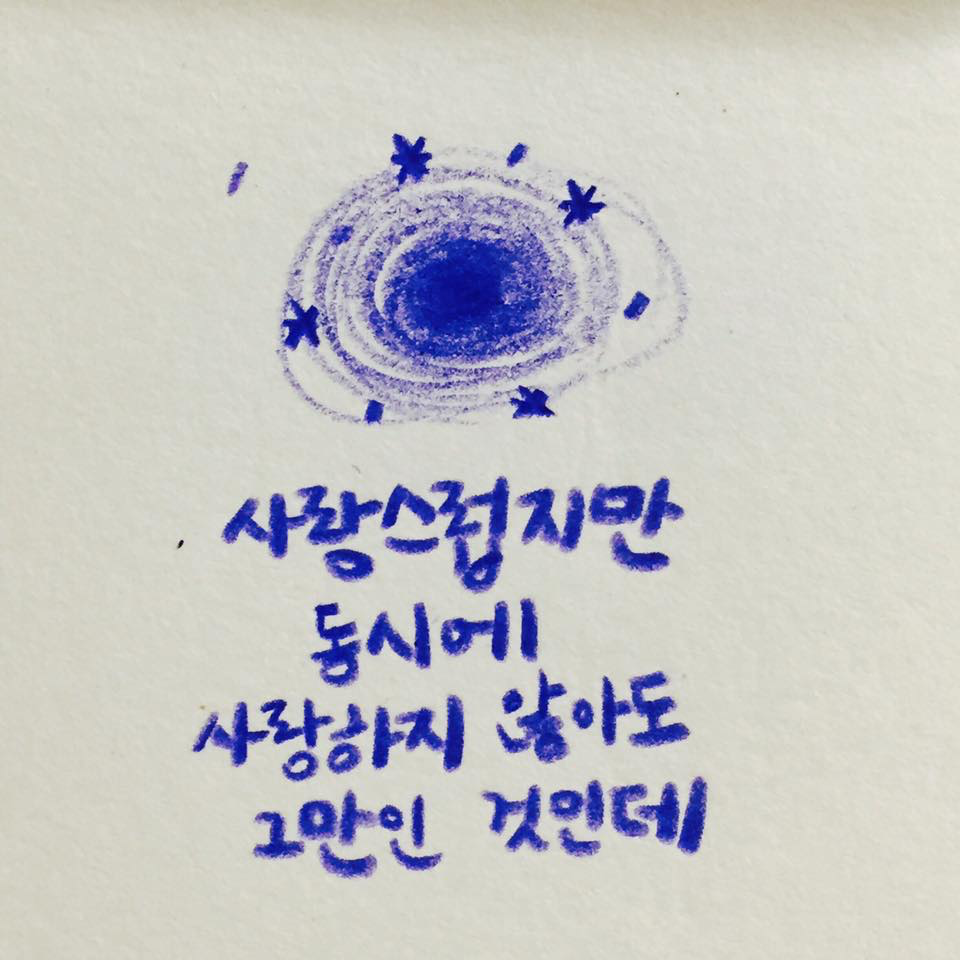 사랑스럽지만
동시에
사랑하지 않아도
그만인 것인데